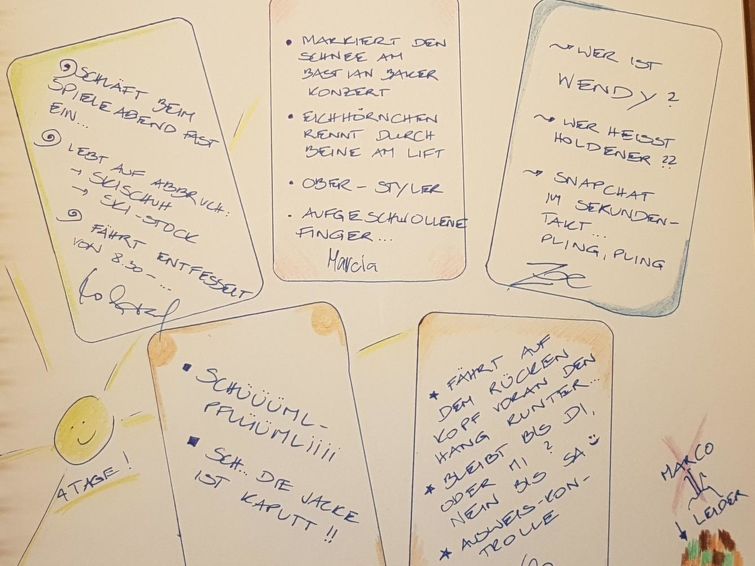 SCHLÄFT BEIM
SPIELEABEND FAST
EIN...
LEBT AUF ABBRUCH:
→ SKISCHUH
→ SKI-STOCK
FÄHRT ENTFESSELT
VON 8.30 - ...
• MARKIERT DEN
SCHNEE AM
BASTIAN BAKER
KONZERT
• EICHHÖRNCHEN
RENNT DURCH
BEINE AM LIFT
• OBER-STYLER
• AUFGESCHWOLLENE
FINGER...
Marcia
WER IST
WENDY?
WER HEISST
HOLDENER ??
SNAPCHAT
IM SEKUNDEN-
TAKT...
PLING, PLING
Zoe
SCHÜÜÜML-
PFLÜÜMLiiii
SCH.. DIE JACKE
IST KAPUTT !!
* FÄHRT AUF
DEM RÜCKEN
KOPF VORAN DEN
HANG RUNTER...
* BLEIBT BIS DI,
ODER MI ?
NEIN BIS SA
* AUSWEIS-KON-
TROLLE
4 TAGE!
MARCO
LEIDER